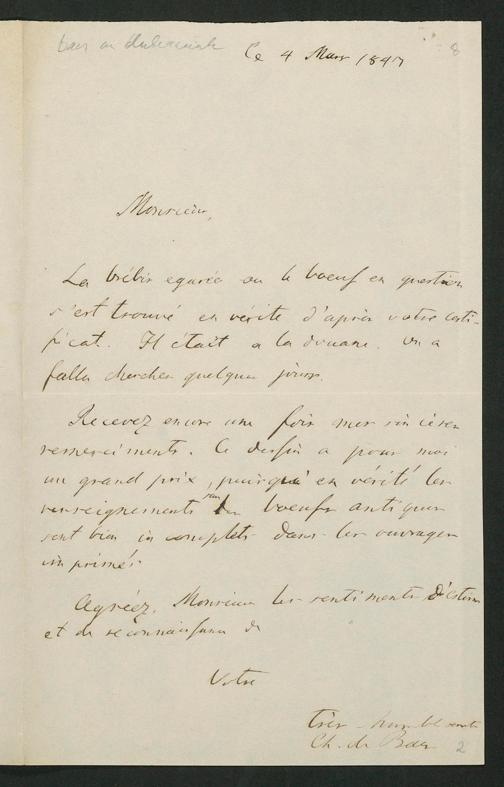 8
Le 4 Mars 1847
Monsieur,
La brébis egarée ou le boeuf en question
s'est trouvé en vérité d'après votre certi-
ficat. Il était a la douane. On a
fallu chercher quelques jours.
Recevez encore une fois mes sincères
remerciments. Ce dessin a pour moi
un grand prix, puisqu'en vérité les
renseignements sur les boeufs antiques
sont bien incomplets dans les ouvrages
imprimés.
Agréez, Monsieur les sentiments d'estime
et de reconnaissance de
Votre
très-humble
Ch. de Baer
2